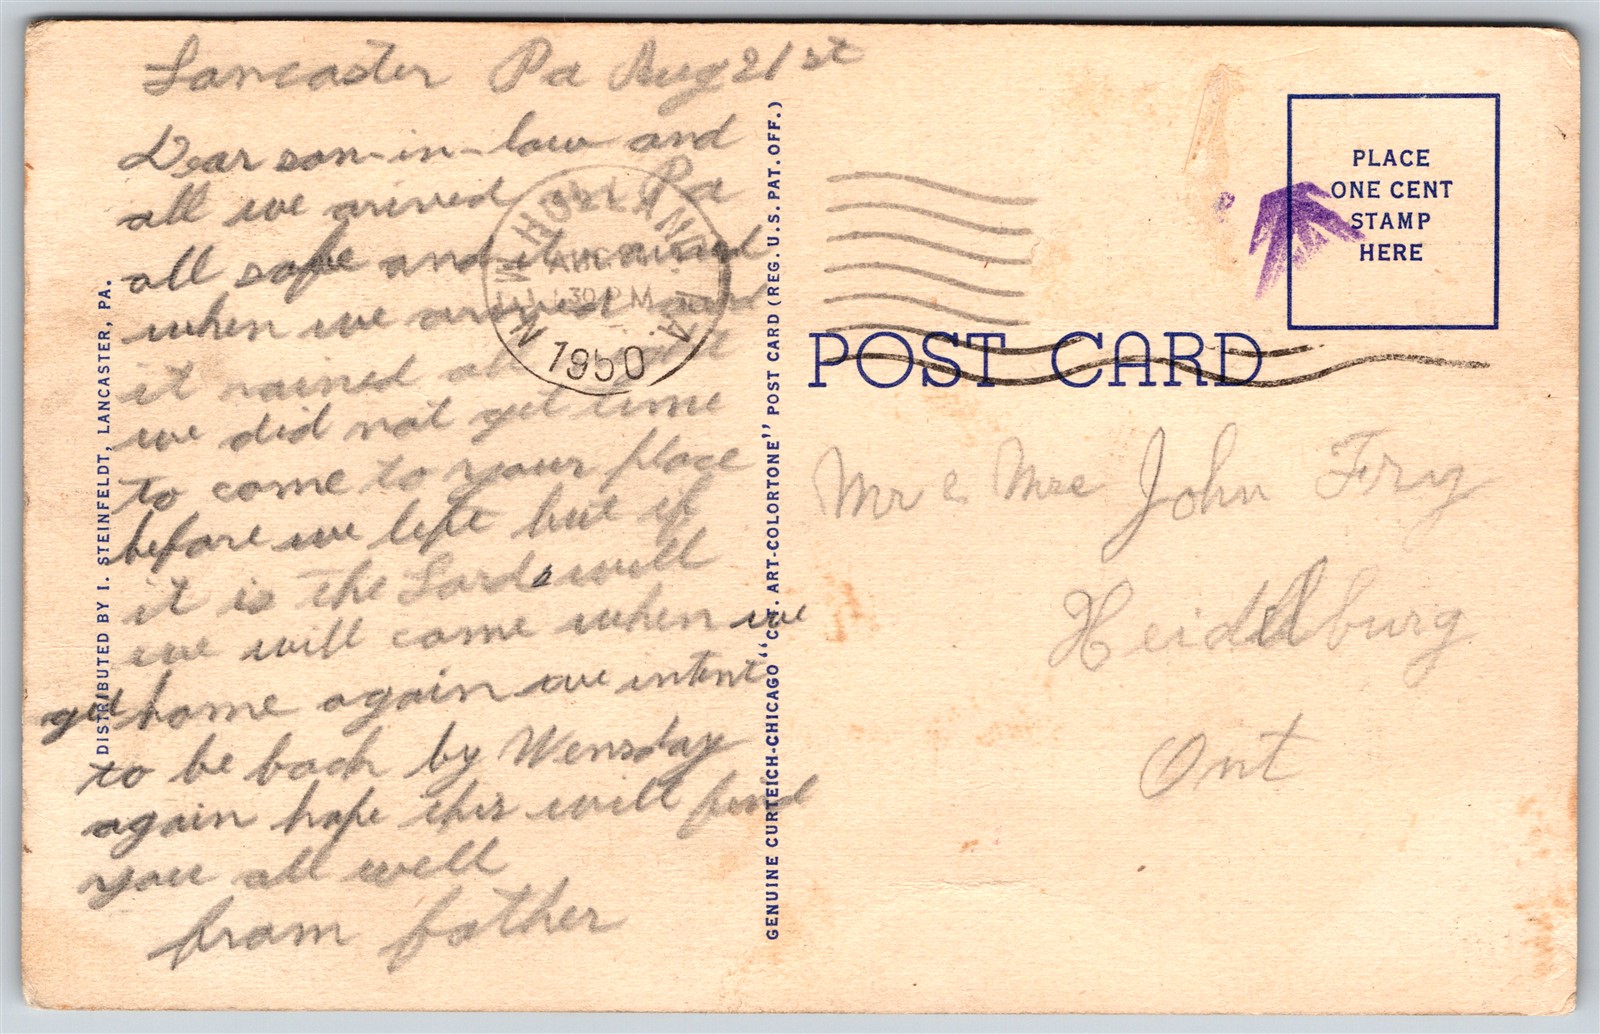 Lancaster Pa Aug 21 st
Dear son-in-law and
all we arived in Pa
all safe and it rained
when we arived and
it rained all
we did not get time
to come to your place
before we left but if
it is the Lords will
we will come when we
get home again we intent
to be back by Wensday
again hope this will find
you all well
from father
NEW HOLLAND PA.
AUG
30 PM
1950
DISTRIBUTED BY I. STEINFELDT, LANCASTER, PA.
GENUINE CURTEICH-CHICAGO "C.T. ART-COLORTONE" POST CARD (REG. U.S. PAT. OFF.)
PLACE
ONE CENT
STAMP
HERE
POST CARD
Mr & Mrs John Fry
Heidelburg
Ont